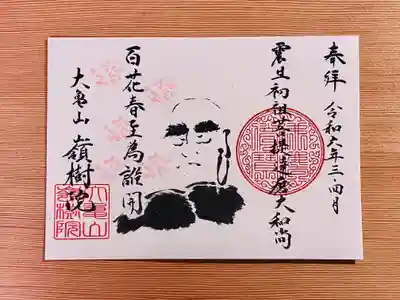 奉拝 令和六年三、四月
震旦初祖菩提達磨大和尚
百花春至為誰開
大亀山 嶺樹院